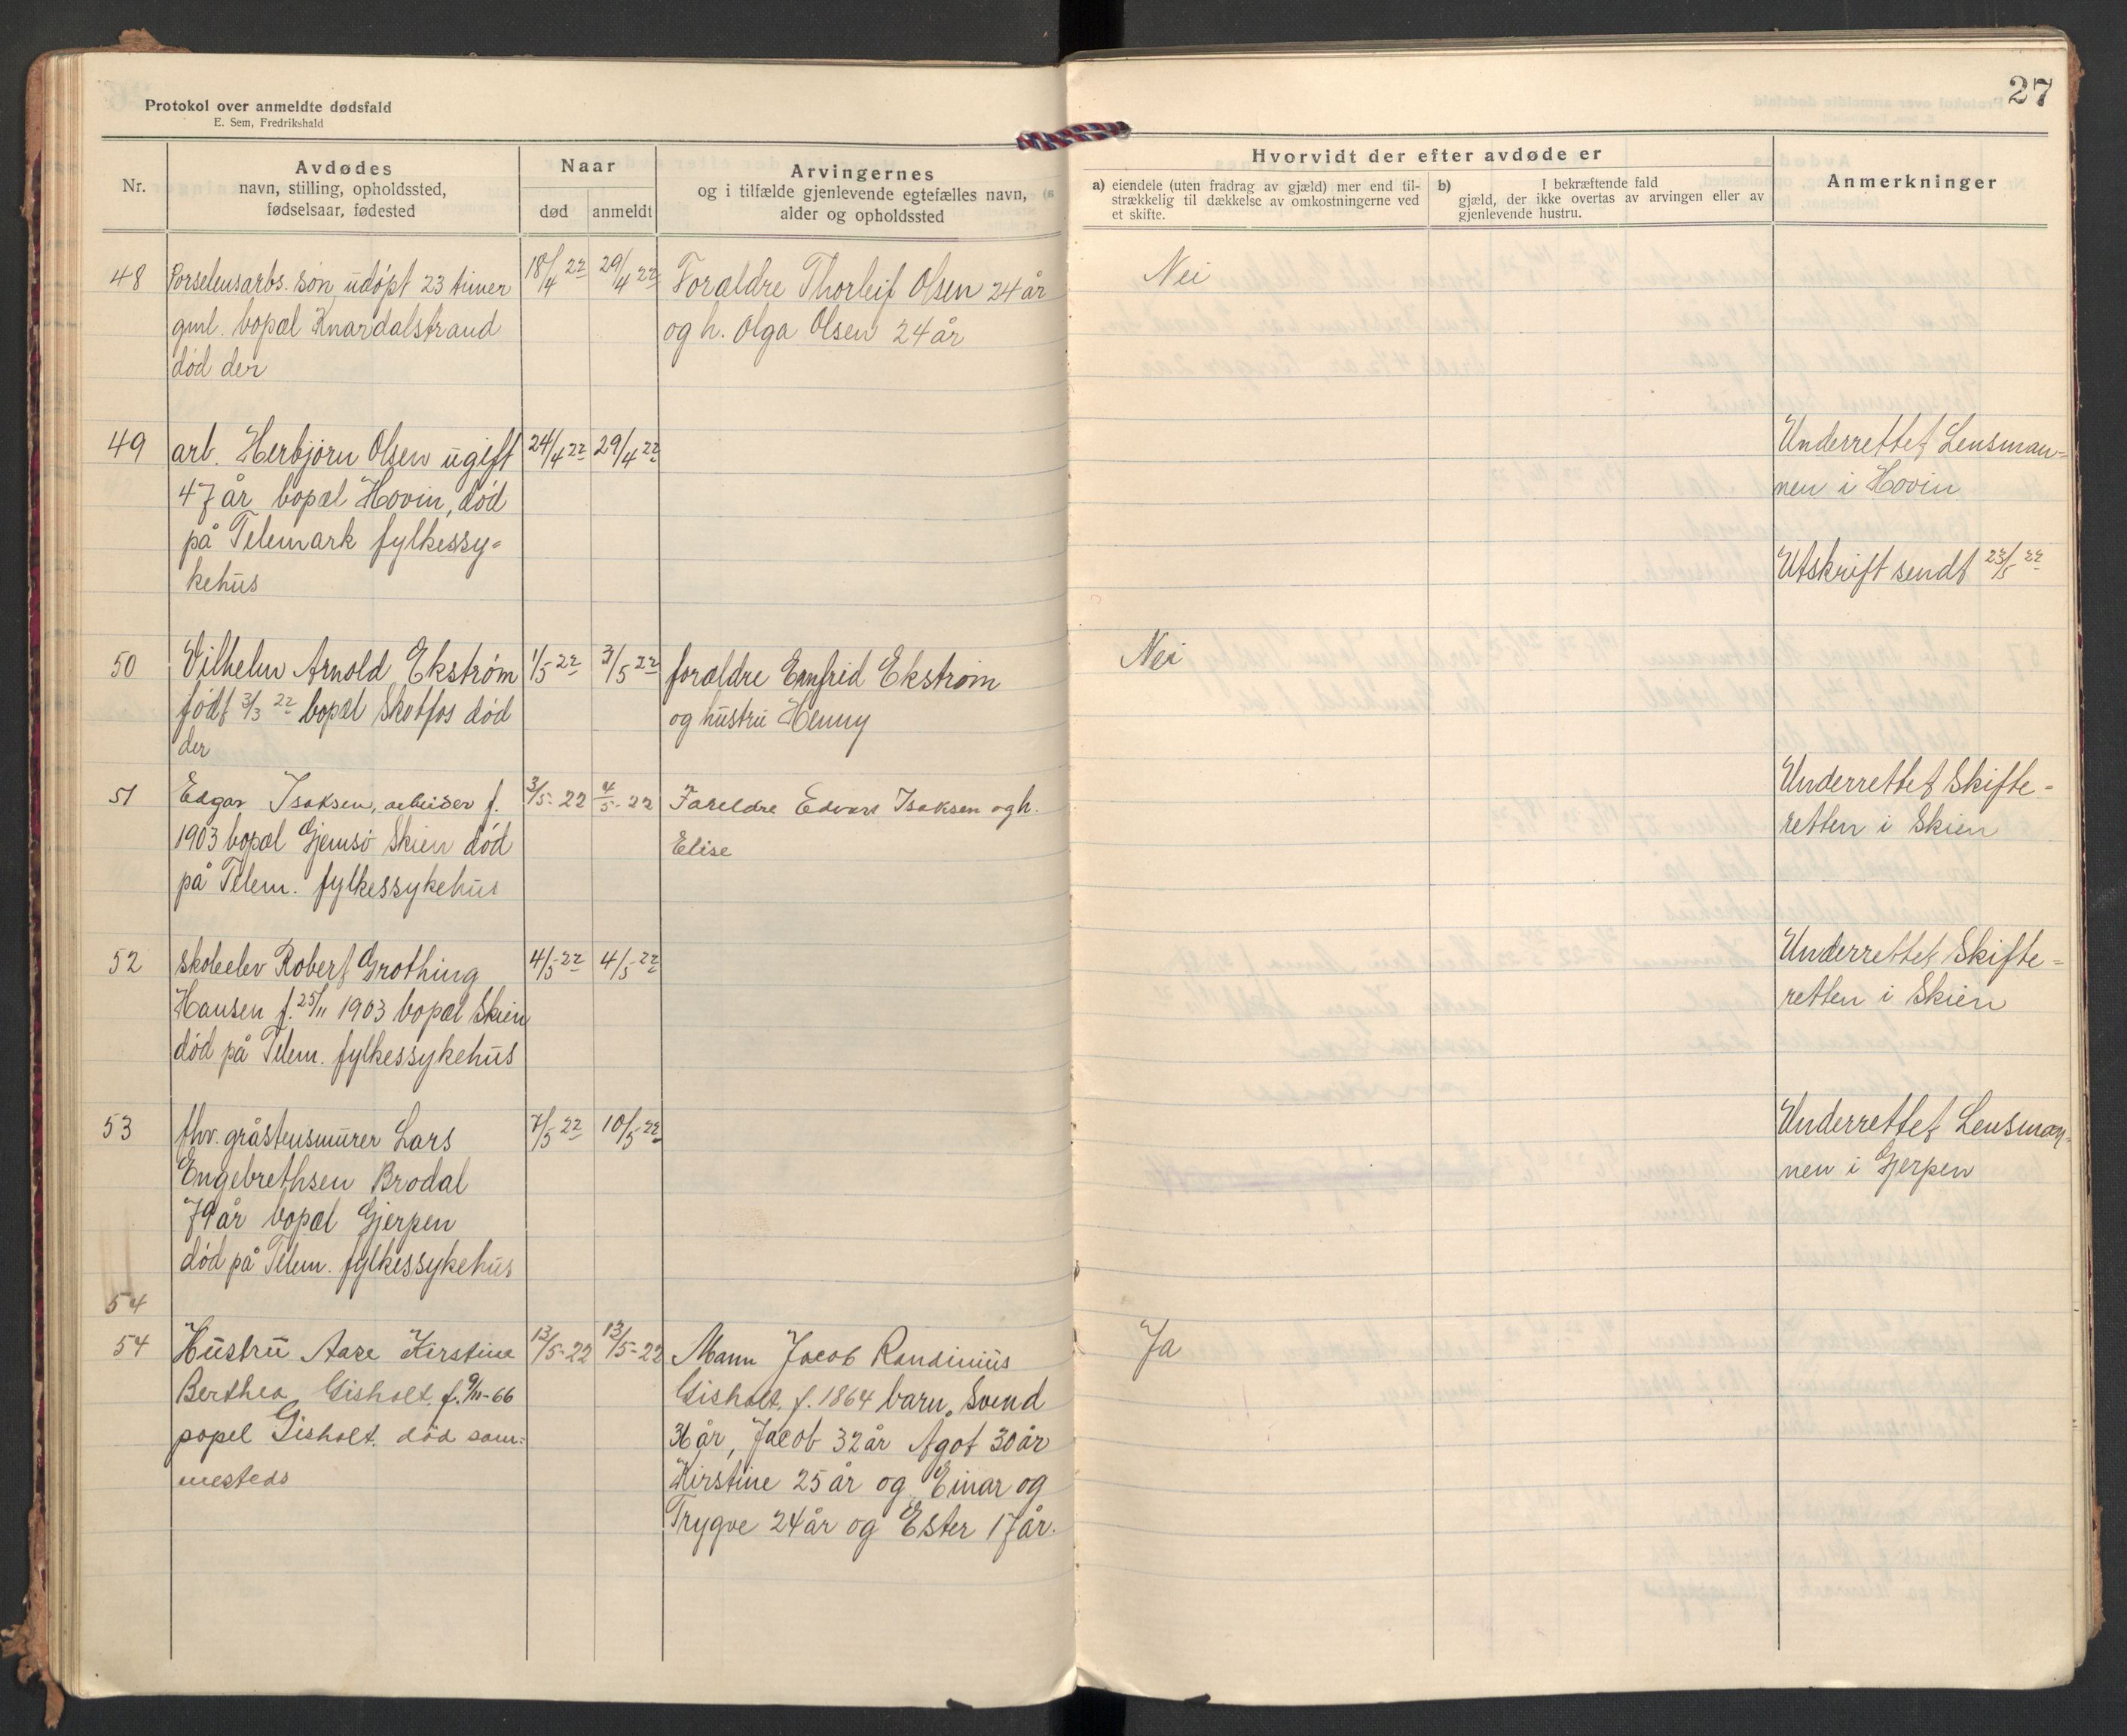 Protokol over anmeldte dødsfald
E. Sem, Fredrikshald
27
Nr.
Avdødes
navn, stilling, opholdssted,
fødselsaar, fødested
Naar
død
anmeldt
Arvingernes
og i tilfælde gjenlevende egtefælles navn,
alder og opholdssted
Hvorvidt der efter avdøde er
a) eiendele (uten fradrag av gjæld) mer end til-
strækkelig til dækkelse av omkostningerne ved
et skifte.
b) I bekræftende fald
gjæld, der ikke overtas av arvingen eller av
gjenlevende hustru.
Anmerkninger
48 Porselensarbs. søn udøpt 23 timer 18/4 22 29/4 22 Forældre Thorleif Olsen 24 år Nei
gml. bopæl Knardalstrand og h. Olga Olsen 24 år
død der
49 arb. Herbjørn Olsen ugift 24/4 22 29/4 22 Underrettet Lensman-
47 år bopæl Hovin, død nen i Hovin
på Telemark fylkessy-
kehus Utskrift sendt 23/5 22
50 Vilhelm Arnold Ekstrøm 1/5 22 3/5 22 forældre Ernfrid Ekstrøm Nei
født 3/3 22 bopæl Skotfos død og hustru Henny
der
51 Edgar Isaksen, arbeider f. 3/5-22 4/5-22 Foreldre Edvart Isaksen og h. Underrettet Skifte-
1903 bopæl Gjemsø Skien død Elise retten i Skien
på Telem. fylkessykehus
52 skoleelev Robert Grothing 4/5 22 4/5 22 Underrettet Skifte-
Hansen f. 25/11 1903 bopæl Skien retten i Skien
død på Telem. fylkessykehus
53 fhv. gråstensmurer Lars 7/5 22 10/5 22 Underrettet Lensman-
Engebrethsen Brodal nen i Gjerpen
79 år bopæl Gjerpen
død på Telem. fylkessykehus
54
54 Hustru Aase Kirstine 13/5-22 13/5-22 Mann Jacob Randinius Ja
Berthea Gisholt. f. 9/11-66 Gisholt. f. 1864 barn. Svend
popel Gisholt. død sam- 36 år, Jacob 32 år Ågot 30 år
mesteds Kirstine 25 år og Einar og
Trygve 24 år og Ester 17 år.